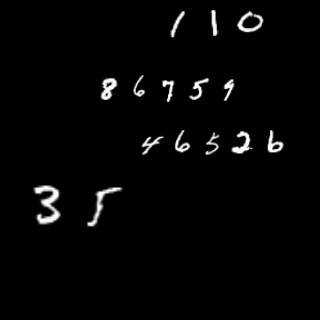 110
86759
46526
35